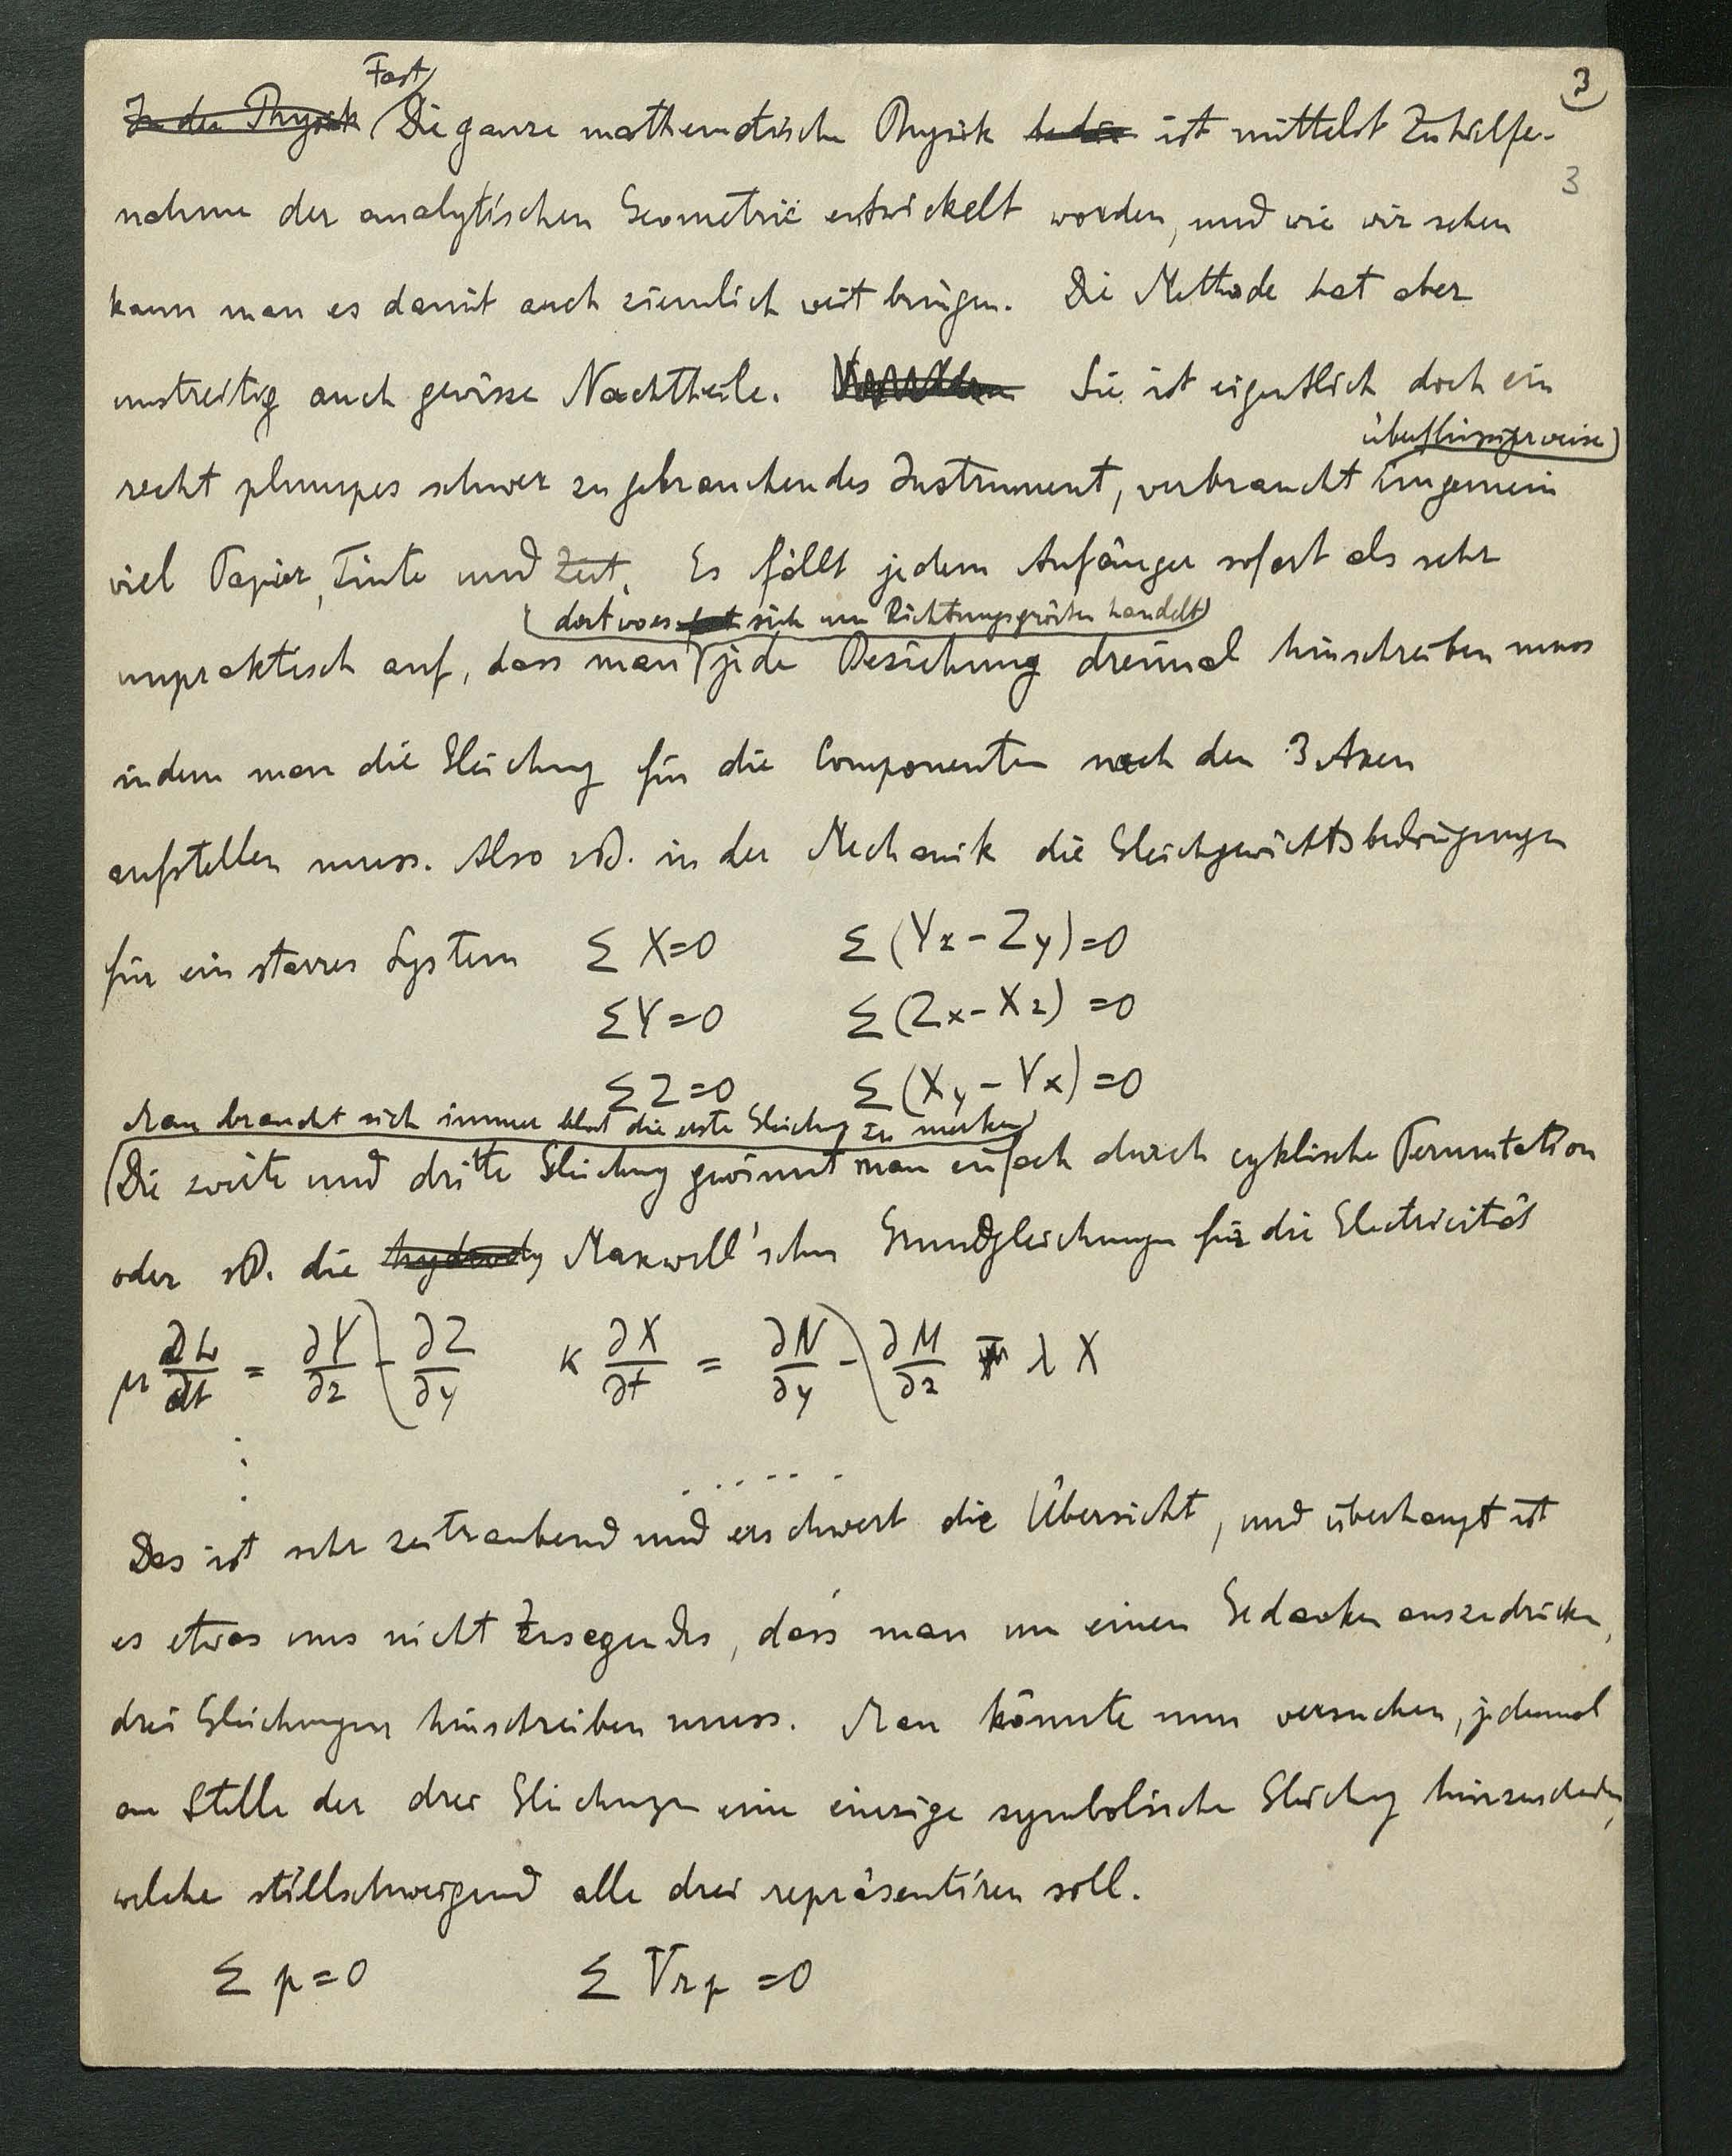 3
Fast
In der Physik Die ganze mathematische Physik ist mittelst Zuhilfe-
3
nahme der analytischen Geometrie entwickelt worden, und wie wir sehen
kann man es damit auch ziemlich weit bringen. Die Methode hat aber
unstreitig auch gewisse Nachtheile. Sie ist eigentlich doch ein
überflüssigerweise
recht plumpes schwer zu gebrauchendes Instrument, verbraucht ungemein
viel Papier, Tinte und Zeit. Es fällt jedem Anfänger sofort als sehr
dort wo es sich um Richtungsgrößen handelt
unpraktisch auf, dass man jede Beziehung dreimal hinschreiben muss
indem man die Gleichung für die Componenten nach den 3 Axen
aufstellen muss. Also zB. in der Mechanik die Gleichgewichtsbedingungen
für ein starres System Σ X=0 Σ (Yz - Zy)=0
Σ Y=0 Σ (Zx - Xz) =0
Σ Z=0 Σ (Xy - Yx)=0
Man braucht sich immer bloß die erste Gleichung zu merken
Die zweite und dritte Gleichung gewinnt man einfach durch cyklische Permutation
oder zB. die hydrody Maxwell'schen Grundgleichungen für die Electricität
μ ∂L/∂t = ∂Y/∂z - ∂Z/∂y κ ∂X/∂t = ∂N/∂y - ∂M/∂z λ X
:
. . . . . .
Das ist sehr zeitraubend und erschwert die Übersicht, und überhaupt ist
es etwas uns nicht Zusagendes, dass man um einen Gedanken auszudrücken,
drei Gleichungen hinschreiben muss. Man könnte nun versuchen, jedesmal
an Stelle der drei Gleichungen eine einzige symbolische Gleichung hinzuschreiben,
welche stillschweigend alle drei repräsentiren soll.
Σ p=0 Σ Vrp =0